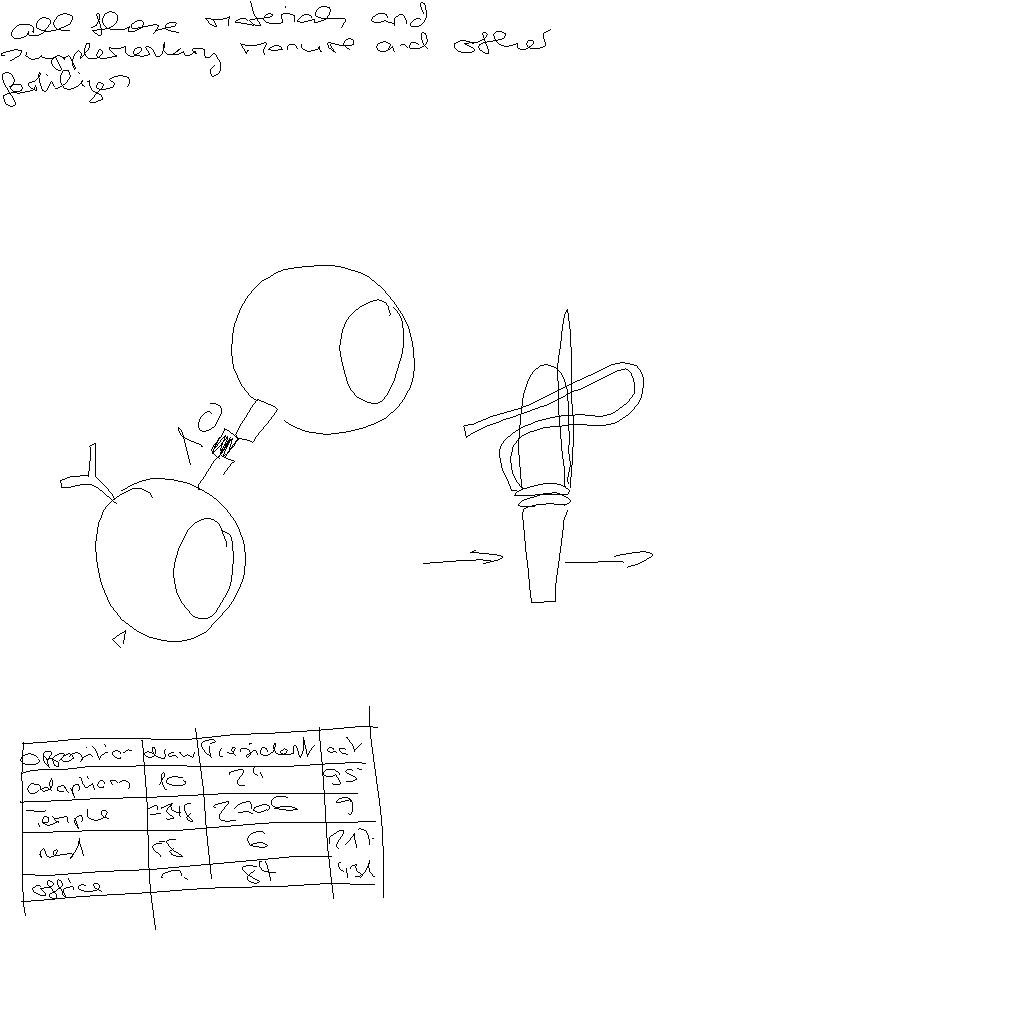 all these materials and
supplementary manure and other
fertilizers
Opposition draw President act
adaptions 10 24 95
Temple 2206 9
next 58 6
office 84